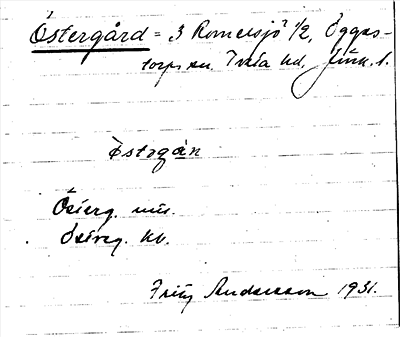 Östergård = "3 Romelsjö" 1/2, Öggas-
torps sn. Tveta hd. Jönk. l.
Östergån
Österg. mtl.
Österg. kb.
Fritz Andersson 1931.